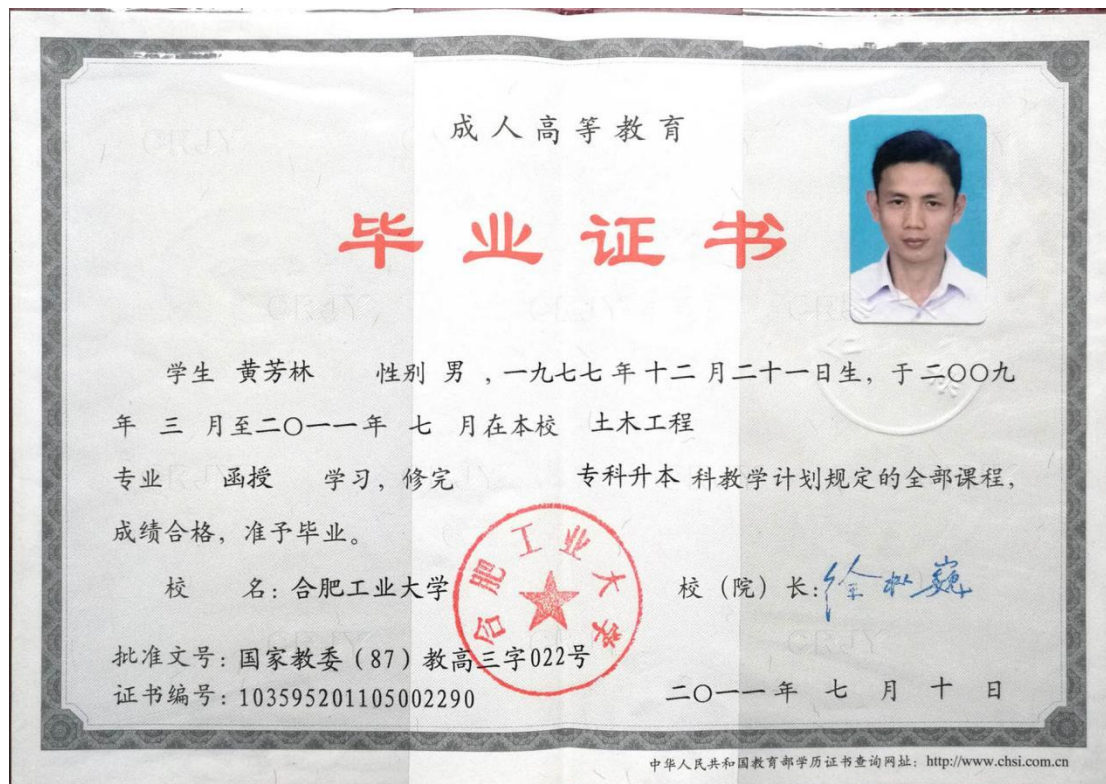 成人高等教育
毕业证书
学生 黄芳林 性别 男 ，一九七七年十二月二十一日生，于二〇〇九
年 三 月至二〇一一年 七 月在本校 土木工程
专业 函授 学习，修完 专科升本 科教学计划规定的全部课程，
成绩合格，准予毕业。
校 名：合肥工业大学
合肥工业大学
校（院）长：徐枞巍
批准文号：国家教委（87）教高三字022号
证书编号：103595201105002290
二〇一一年 七 月 十 日
中华人民共和国教育部学历证书查询网址：http://www.chsi.com.cn